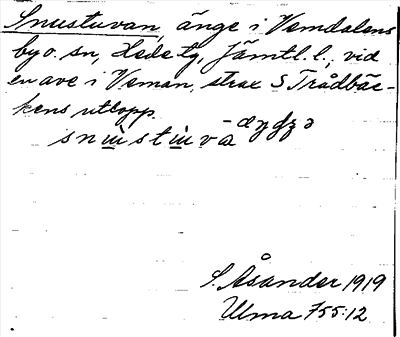 Snustuvan, änge i Vemdalens
by o. sn, Hede tg, Jämtl. l., vid
en ave i Veman, strax S Trådbäc-
kens utlopp.
S. Åsander 1919
Ulma 755:12